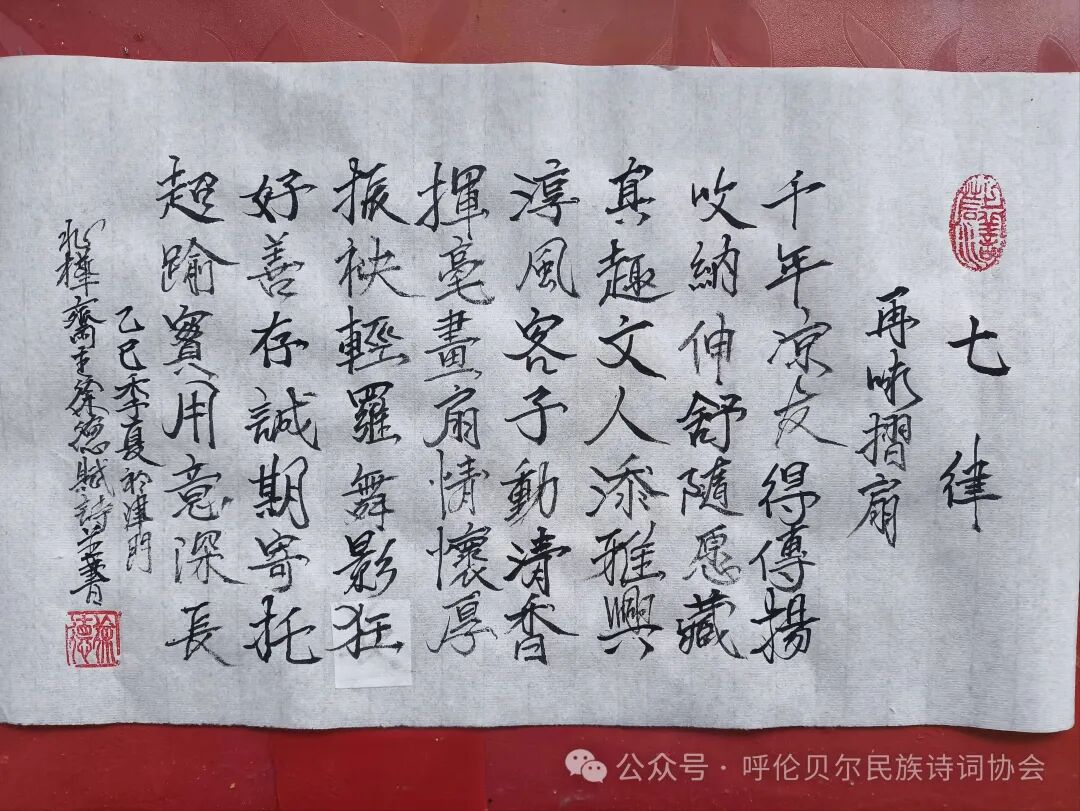 七律
再咏摺扇
千年凉友得傳揚
收納伸舒随愿藏
真趣文人添雅興
淳風客子動清香
揮毫畫扇情懷厚
振袂輕羅舞影狂
好善存誠期寄托
超踰寳用意深長
乙巳季夏於津門
樺齋主徐德賦詩并書
公众号·呼伦贝尔民族诗词协会